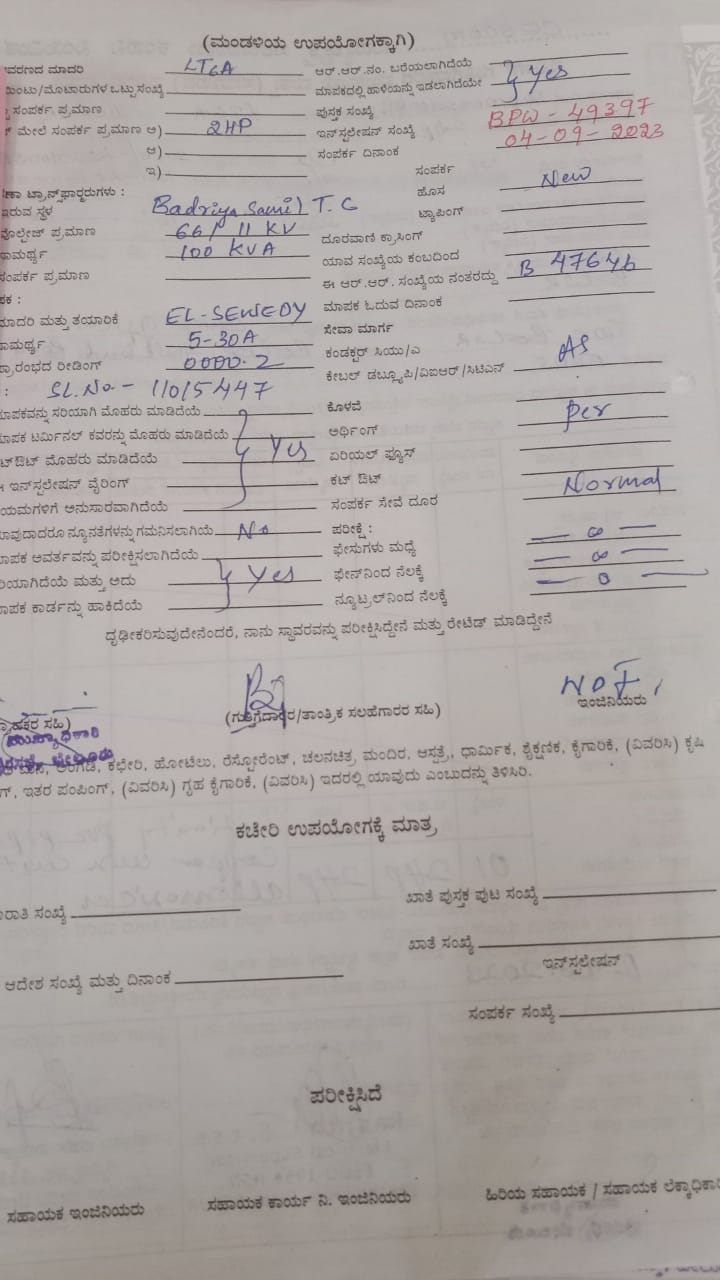 (ಮಂಡಳಿಯ ಉಪಯೋಗಕ್ಕಾಗಿ)
ವರಣದ ಮಾದರಿ LT6A ಆರ್.ಆರ್.ನಂ. ಬರೆಯಲಾಗಿದೆಯೆ
ಮಿಂಟು/ಮೊಟಾರುಗಳ ಒಟ್ಟುಸಂಖ್ಯೆ ಮಾಪಕದಲ್ಲಿ ಹಾಳೆಯನ್ನು ಇಡಲಾಗಿದೆಯೇ Yes
ಸಂಪರ್ಕ ಪ್ರಮಾಣ ಪುಸ್ತಕ ಸಂಖ್ಯೆ
ಮೇಲೆ ಸಂಪರ್ಕ ಪ್ರಮಾಣ ಅ) 2HP ಇನ್‌ಸ್ಟಲೇಷನ್ ಸಂಖ್ಯೆ BPW - 49397
ಆ) ಸಂಪರ್ಕ ದಿನಾಂಕ 04-09-2023
ಇ) ಸಂಪರ್ಕ
ಟ್ರಾನ್ಸ್‌ಫಾರ್ಮರುಗಳು : ಹೊಸ New
ಇರುವ ಸ್ಥಳ Badriya Samil T.C ಟ್ಯಾಪಿಂಗ್
ವೋಲ್ಟೇಜ್ ಪ್ರಮಾಣ 66/11 KV ದೂರವಾಣಿ ಕ್ರಾಸಿಂಗ್
ಸಾಮರ್ಥ್ಯ 100 KVA ಯಾವ ಸಂಖ್ಯೆಯ ಕಂಬದಿಂದ
ಸಂಪರ್ಕ ಪ್ರಮಾಣ ಈ ಆರ್.ಆರ್. ಸಂಖ್ಯೆಯ ನಂತರದ್ದು B 47646
ಪಕ : ಮಾಪಕ ಓದುವ ದಿನಾಂಕ
ಮಾದರಿ ಮತ್ತು ತಯಾರಿಕೆ EL-SEWEDY ಸೇವಾ ಮಾರ್ಗ
ಸಾಮರ್ಥ್ಯ 5-30A ಕಂಡಕ್ಟರ್ ಸಿಯು/ಎ
ಪ್ರಾರಂಭದ ರೀಡಿಂಗ್ 0000.2 ಕೇಬಲ್ ಡಬ್ಲ್ಯೂಪಿ/ವಿಐಆರ್/ಸಿಟಿಎಸ್ AS
: SL.No - 11015447
ಮಾಪಕವನ್ನು ಸರಿಯಾಗಿ ಮೊಹರು ಮಾಡಿದೆಯೆ ಕೊಳವೆ
ಮಾಪಕ ಟರ್ಮಿನಲ್ ಕವರನ್ನು ಮೊಹರು ಮಾಡಿದೆಯೆ ಅರ್ಥಿಂಗ್ per
ಟ್‌ಔಟ್ ಮೊಹರು ಮಾಡಿದೆಯೆ Yes ಏರಿಯಲ್ ಫ್ಯೂಸ್
ಇನ್‌ಸ್ಟಲೇಷನ್ ವೈರಿಂಗ್ ಕಟ್ ಔಟ್
ಯಮಗಳಿಗೆ ಅನುಸಾರವಾಗಿದೆಯೆ ಸಂಪರ್ಕ ಸೇವೆ ದೂರ Normal
ಯಾವುದಾದರೂ ನ್ಯೂನತೆಗಳನ್ನು ಗಮನಿಸಲಾಗಿಯೆ No ಪರೀಕ್ಷೆ :
ಮಾಪಕ ಆವರ್ತವನ್ನು ಪರೀಕ್ಷಿಸಲಾಗಿದೆಯೆ ಫೇಸುಗಳು ಮಧ್ಯೆ — ∞ —
ರಿಯಾಗಿದೆಯೆ ಮತ್ತು ಅದು Yes ಫೇಸ್‌ನಿಂದ ನೆಲಕ್ಕೆ — ∞ —
ಮಾಪಕ ಕಾರ್ಡನ್ನು ಹಾಕಿದೆಯೆ ನ್ಯೂಟ್ರಲ್‌ನಿಂದ ನೆಲಕ್ಕೆ — 0 —
ದೃಢೀಕರಿಸುವುದೇನೆಂದರೆ, ನಾನು ಸ್ಥಾವರವನ್ನು ಪರೀಕ್ಷಿಸಿದ್ದೇನೆ ಮತ್ತು ರೇಟೆಡ್ ಮಾಡಿದ್ದೇನೆ
ಗ್ರಾಹಕರ ಸಹಿ) (ಗುತ್ತಿಗೆದಾರರ/ತಾಂತ್ರಿಕ ಸಲಹೆಗಾರರ ಸಹಿ) ಇಂಜಿನಿಯರು
ಮುಖ್ಯಾಧಿಕಾರಿ
ಮನೆ, ಅಂಗಡಿ, ಕಛೇರಿ, ಹೋಟೆಲು, ರೆಸ್ಟೋರೆಂಟ್, ಚಲನಚಿತ್ರ ಮಂದಿರ, ಆಸ್ಪತ್ರೆ, ಧಾರ್ಮಿಕ, ಶೈಕ್ಷಣಿಕ, ಕೈಗಾರಿಕೆ, (ವಿವರಿಸಿ) ಕೃಷಿ
ಗ್, ಇತರ ಪಂಪಿಂಗ್, (ವಿವರಿಸಿ) ಗೃಹ ಕೈಗಾರಿಕೆ, (ವಿವರಿಸಿ) ಇದರಲ್ಲಿ ಯಾವುದು ಎಂಬುದನ್ನು ತಿಳಿಸಿರಿ.
ಕಚೇರಿ ಉಪಯೋಗಕ್ಕೆ ಮಾತ್ರ
ರಾತಿ ಸಂಖ್ಯೆ ಖಾತೆ ಪುಸ್ತಕ ಪುಟ ಸಂಖ್ಯೆ
ಖಾತೆ ಸಂಖ್ಯೆ
ಆದೇಶ ಸಂಖ್ಯೆ ಮತ್ತು ದಿನಾಂಕ ಇನ್‌ಸ್ಟಲೇಷನ್
ಸಂಪರ್ಕ ಸಂಖ್ಯೆ
ಪರೀಕ್ಷಿಸಿದೆ
ಸಹಾಯಕ ಇಂಜಿನಿಯರು ಸಹಾಯಕ ಕಾರ್ಯ ನಿ. ಇಂಜಿನಿಯರು ಹಿರಿಯ ಸಹಾಯಕ / ಸಹಾಯಕ ಲೆಕ್ಕಾಧಿಕಾರಿ